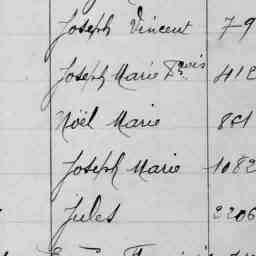 Joseph Vincent 79
Joseph Marie Frois 412
Noël Marie 881
Joseph Marie 1082
Jules 2206